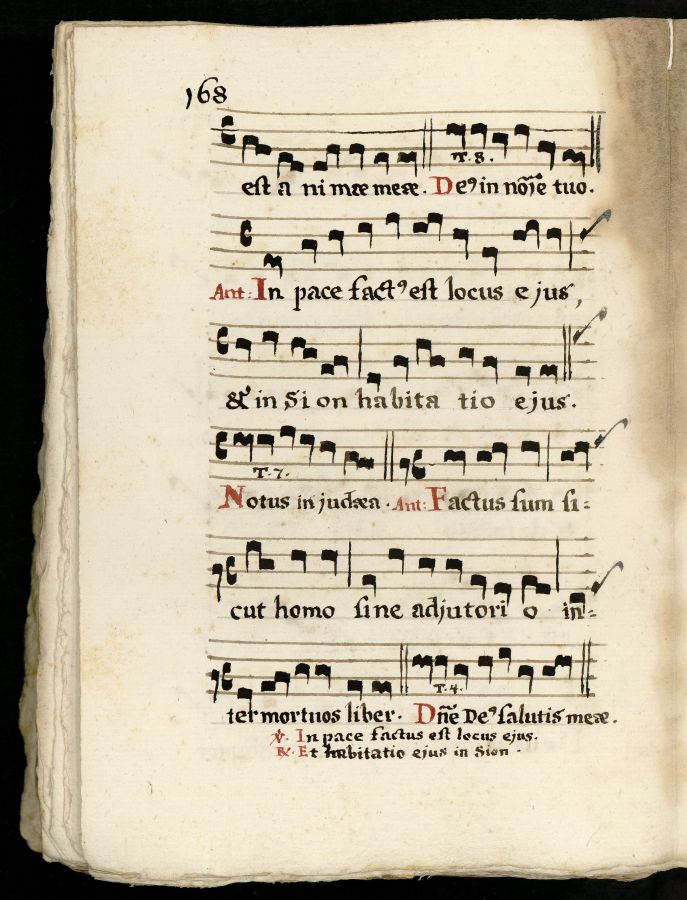 168
est a ni mæ meæ. Deꝰ in nõie tuo.
T. 8.
Ant: In pace factꝰ est locus ejus,
& in Si on habita tio ejus.
T. 7.
Notus in judæa. Ant: Factus sum si=
cut homo sine adjutori o in=
T. 4.
ter mortuos liber. Dñe Deꝰ salutis meæ.
℣. In pace factus est locus ejus.
℟. Et habitatio ejus in Sion.